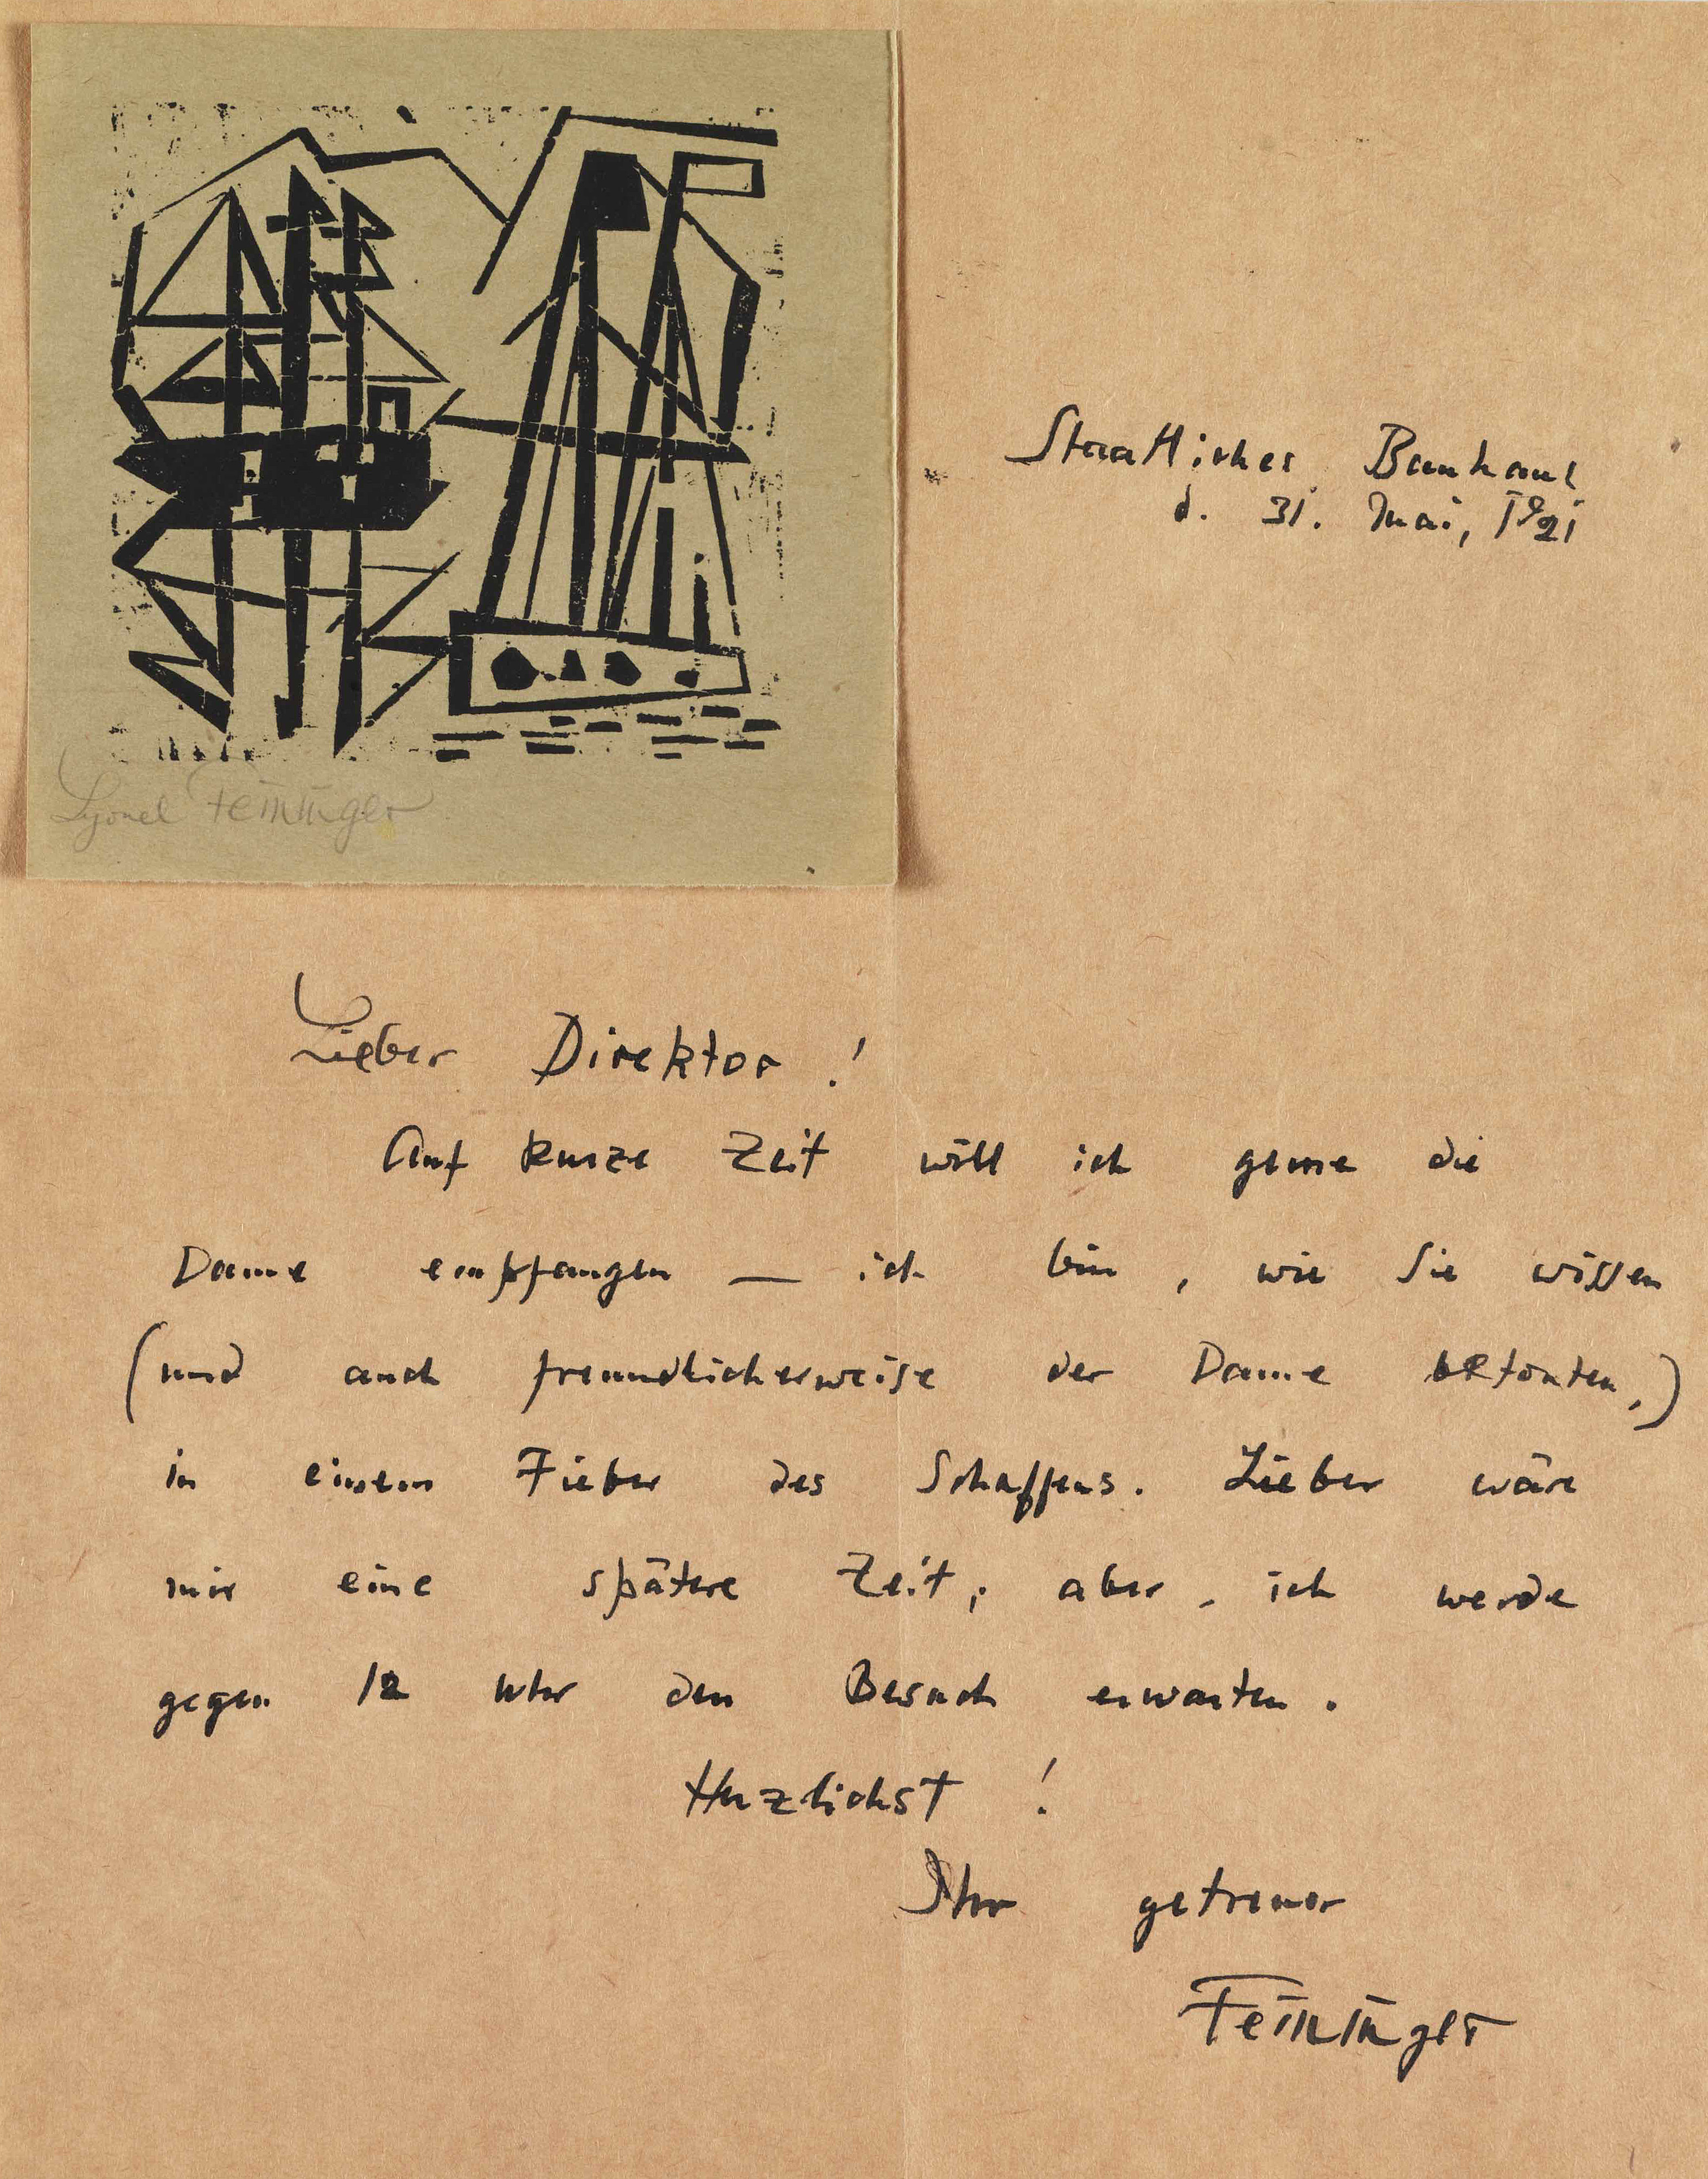 Lyonel Feininger
Staatliches Bauhaus
d. 31. Mai, 1921
Lieber Direktor !
Auf kurze Zeit will ich gerne die
Dame empfangen — ich bin, wie Sie wissen
(und auch freundlicherweise der Dame betonten,)
in einem Fieber des Schaffens. Lieber wäre
mir eine spätere Zeit; aber - ich werde
gegen 12 Uhr den Besuch erwarten.
Herzlichst !
Ihr getreuer
Feininger